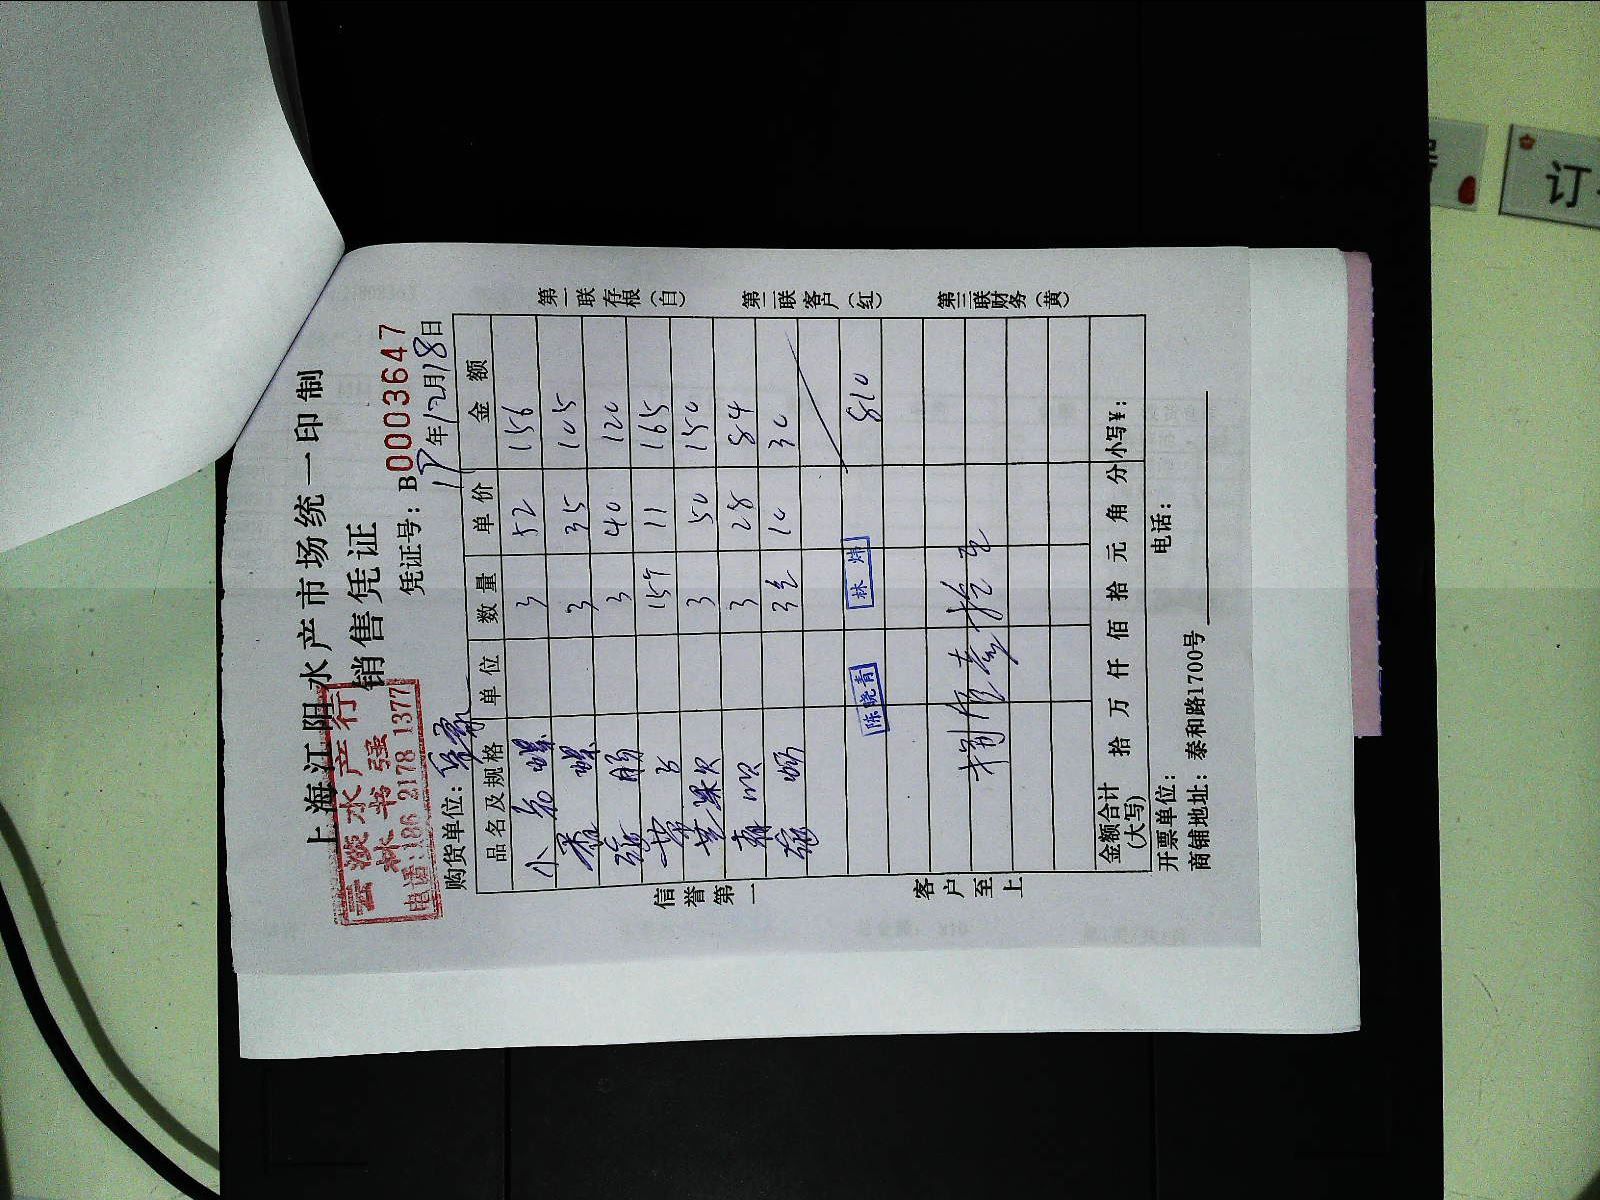 上海江阳水产市场统一印制
销售凭证
云淡水产行
林书强
电话:186 2178 1377
凭证号：B0003647
购货单位：
17年12月18日
品名及规格 单位 数量 单价 金额
小 螺 3 52 156
香螺 3 35 105
3 40 120
15 11 165
3 50 150
3 28 84
3 10 30
810
陈晓青 林炜
捌佰壹拾元
金额合计(大写) 拾 万 仟 佰 拾 元 角 分 小写¥：
开票单位： 电话：
商铺地址：泰和路1700号
信誉第一 客户至上
第一联存根(白) 第二联客户(红) 第三联财务(黄)
订